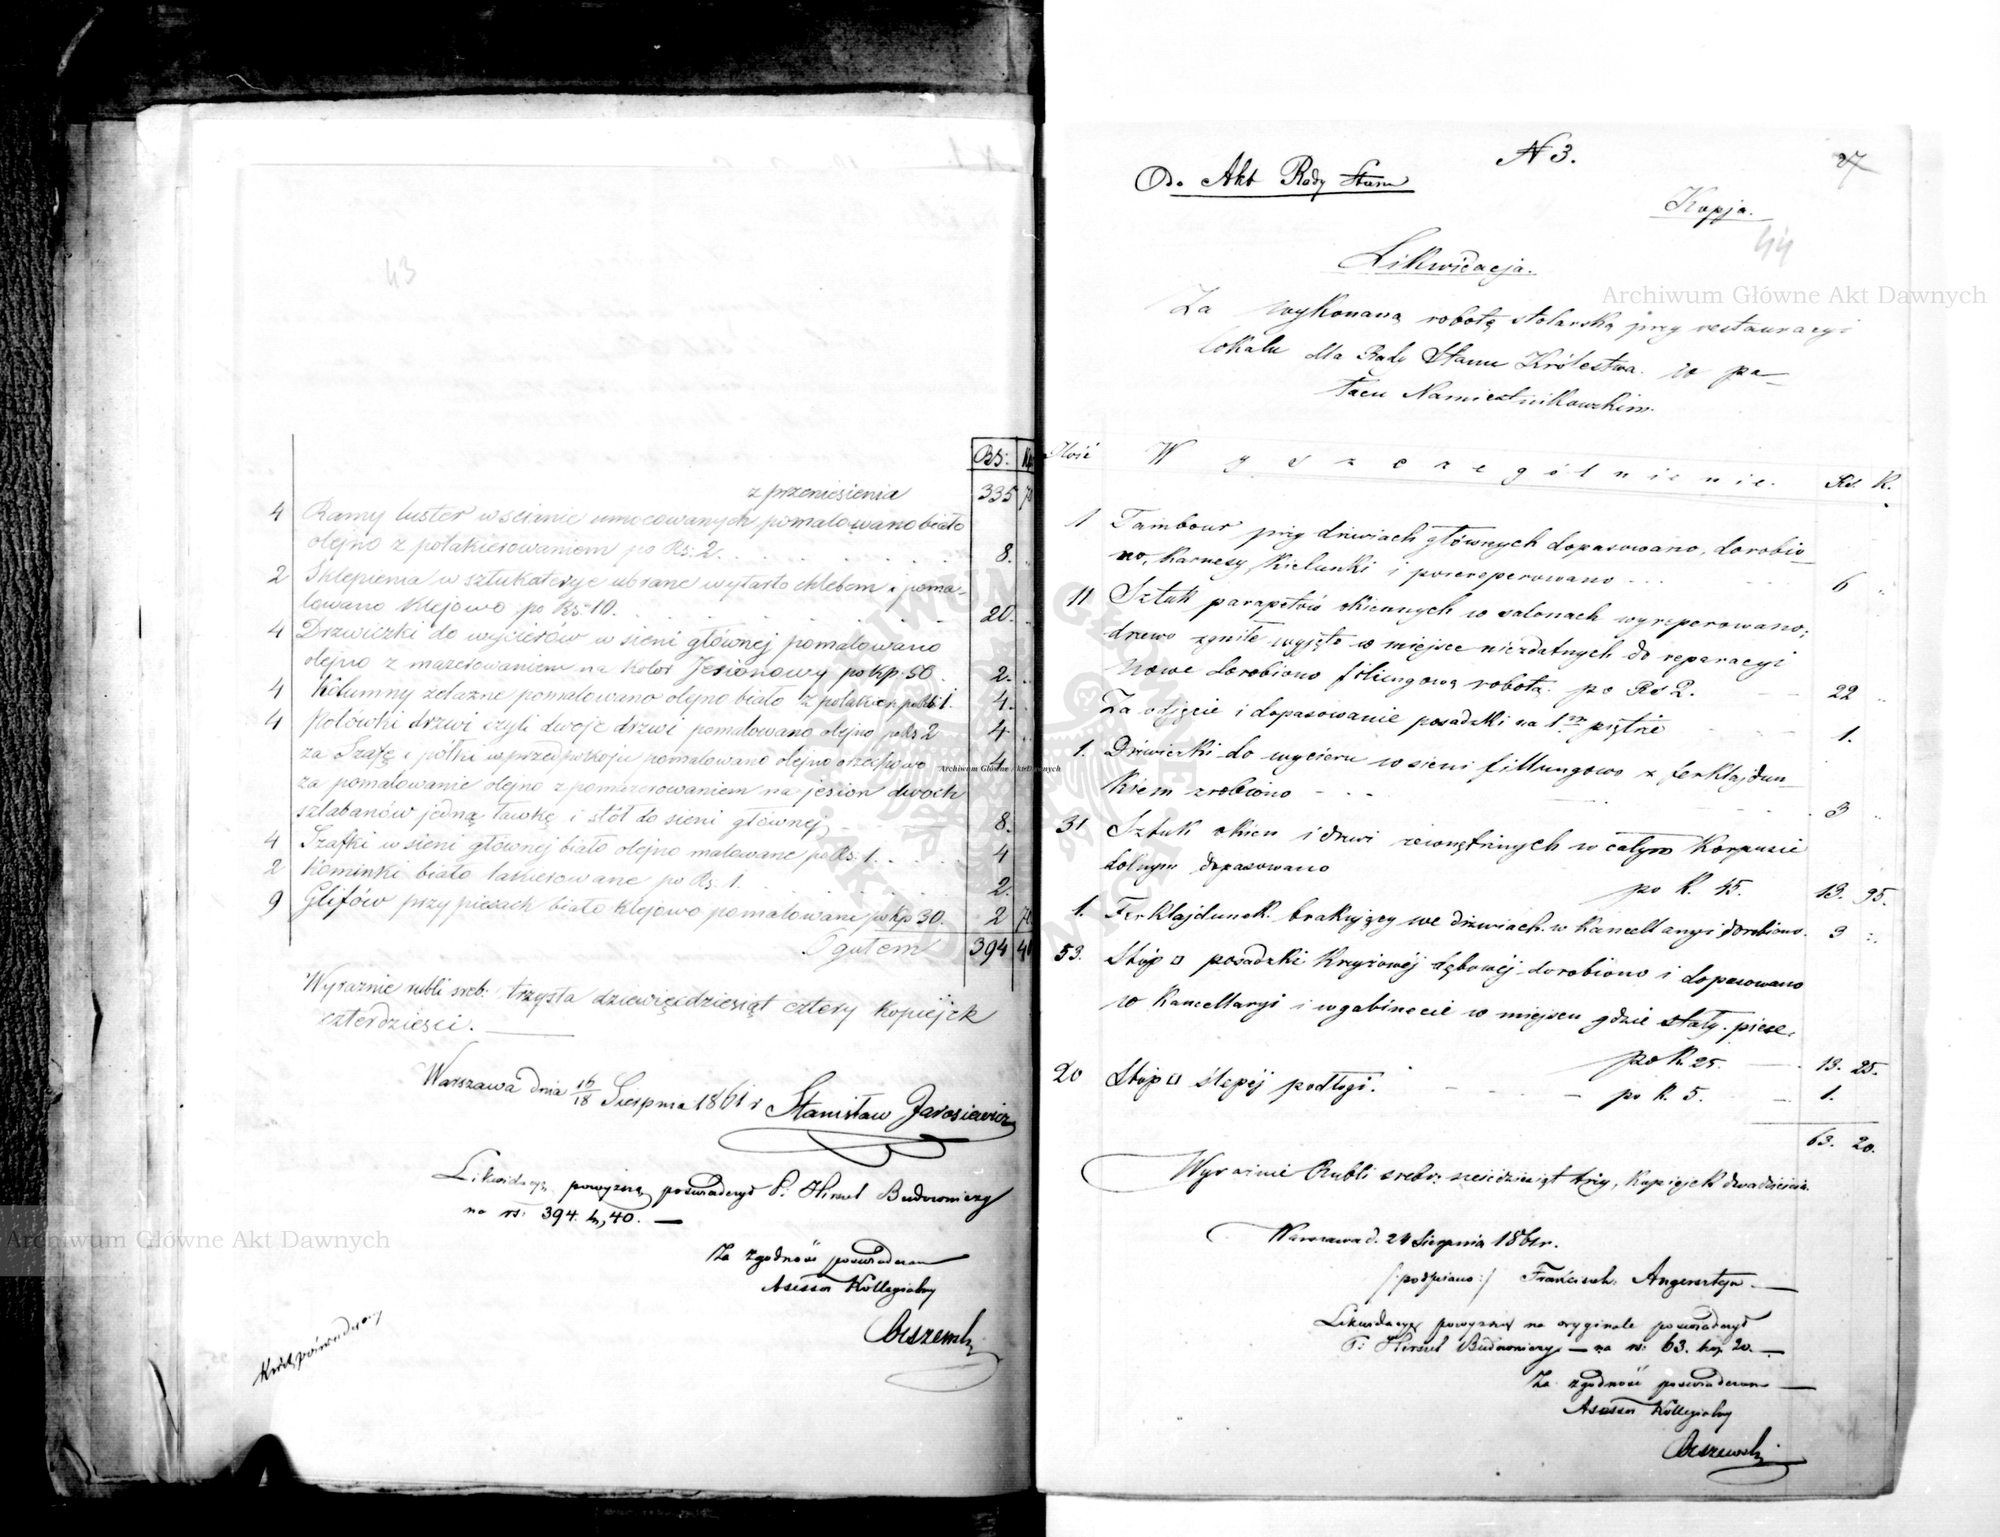 43
Rs: Kp
z przeniesienia 335 70
4 Ramy luster w scianie umocowanych pomalowano biało
olejno z polakierowaniem po Rs: 2. 8.
2 Sklepienia w sztukaterye ubrane wytarto chlebem i poma-
lowano klejowo po Rs 10. 20.
4 Drzwiczki do wycierów w sieni głównej pomalowano
olejno z mazerowaniem na kolor Jesionowy po Kp. 50. 2.
4 Kolumny żelazne pomalowano olejno biało z polakier. po Rs 1. 4.
4 Połówki drzwi czyli dwoje drzwi pomalowano olejno po Rs 2 4
za Szafę i półki w przedpokoju pomalowano olejno orzechowo 4
za pomalowanie olejno z pomazerowaniem na jesion dwóch
szlabanów jedną ławkę i stół do sieni głównej 8.
4 Szafki w sieni głównej biało olejno malowane po Rs: 1. 4
2 Kominki biało lakierowane po Rs. 1. 2.
9 Glifów przy piecach biało klejowo pomalowane po Kp 30. 2 70
Ogułem 394 40
Wyraznie rubli sreb: trzysta dziewięćdziesiąt cztery kopiejek
czterdzieści.
Warszawa dnia 16/18 Sierpnia 1861 r Stanisław Jarosiewicz
Likwidacyę powyższą poświadczył P. Hirszel Budowniczy
na rs: 394. k, 40. —
Za zgodność poświadczam
Asessor Kollegialny
Kwit poświadczony
N 3.
27
Do Akt Rady Stanu
Kopja.
44
Likwidacja.
Za wykonaną robotę stolarską przy restauracyi
lokalu dla Rady Stanu Królestwa w pa-
łacu Namiestnikowskim.
Ilość Wyszczególnienie. Rs. K.
1 Tambour przy drzwiach głównych dopasowano, dorobio-
no, karnesy, kielunki i porereperowano 6
11 Sztuk parapetów okiennych w salonach wyreperowano,
drzewo zgniłe wyjęto w miejsce niezdatnych do reparacyi
nowe dorobiono filungową robotą. po Rs 2. 22
Za odjęcie i dopasowanie posadzki na 1m piętrze 1.
1. Drzwiczki do wycieru w sieni fillungowo z ferklajdun-
kiem zrobiono 3
31 Sztuk okien i drzwi zewnętrznych w całym Korpusie
dolnym dopasowano po K. 45. 13. 95.
1. Ferklajdunek brakujący we drzwiach w Kancellaryi dorobiono. 3
53. Stóp □ posadzki krzyżowéj dębowéj dorobiono i dopasowano
w Kancellaryi i w gabinecie w miejscu gdzie stały piece,
po K. 25. 13. 25.
20 Stóp □ ślepéj podłogi. po K. 5. 1.
63. 20.
Wyraźnie Rubli srebr: sześćdziesiąt trzy, Kopiejek dwadzieścia.
Warszawa d. 24 Sierpnia 1861 r.
/:podpisano:/ Franciszek Angersztejn —
Likwidacyę powyższą na oryginale poświadczył
P: Hirszel Budowniczy — na rs: 63. kop. 20. —
Za zgodność poświadczam —
Asessor Kollegialny
Archiwum Główne Akt Dawnych
Archiwum Główne Akt Dawnych
Archiwum Główne Akt Dawnych